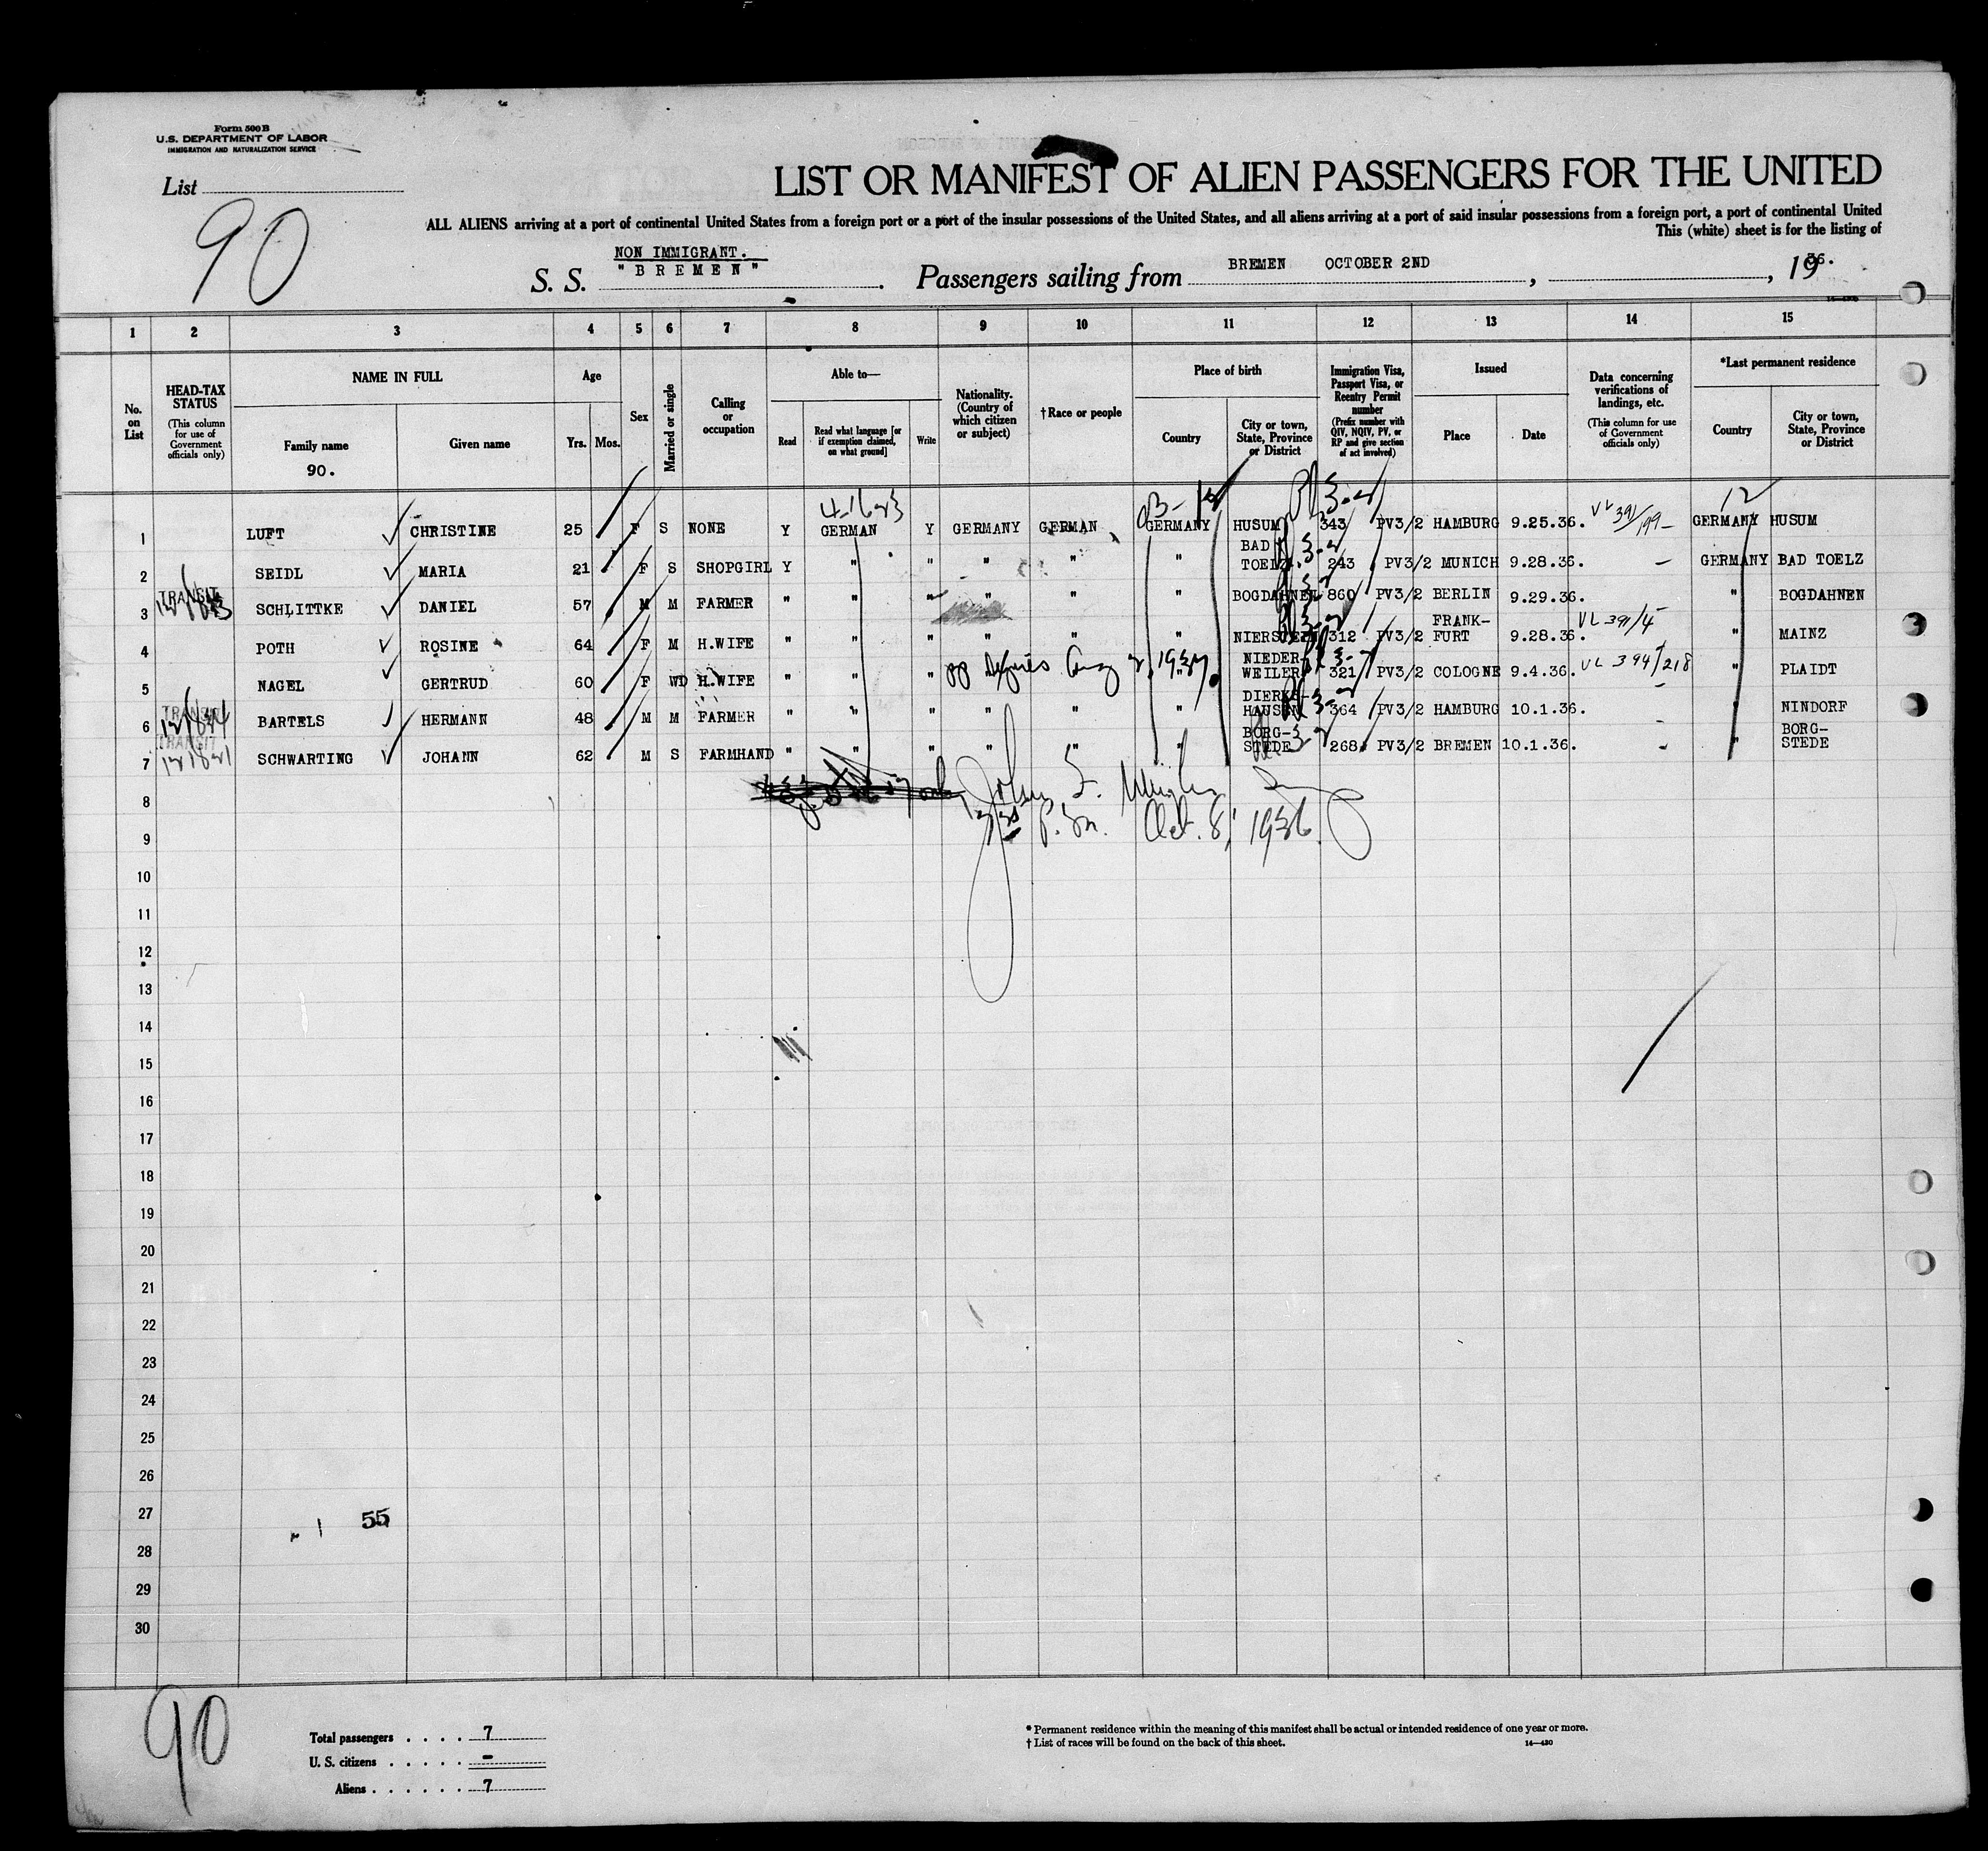 Form 500 B
U.S. DEPARTMENT OF LABOR
IMMIGRATION AND NATURALIZATION SERVICE
List
90
LIST OR MANIFEST OF ALIEN PASSENGERS FOR THE UNITED
ALL ALIENS arriving at a port of continental United States from a foreign port or a port of the insular possessions of the United States, and all aliens arriving at a port of said insular possessions from a foreign port, a port of continental United
This (white) sheet is for the listing of
NON IMMIGRANT.
S. S. "BREMEN". Passengers sailing from BREMEN OCTOBER 2ND, , 1936.
1 2 3 4 5 6 7 8 9 10 11 12 13 14 15
No. on List
HEAD-TAX STATUS (This column for use of Government officials only)
NAME IN FULL
Family name
90.
Given name
Age
Yrs. Mos.
Sex
Married or single
Calling or occupation
Able to—
Read
Read what language [or if exemption claimed, on what ground]
Write
Nationality. (Country of which citizen or subject)
†Race or people
Place of birth
Country
City or town, State, Province or District
Immigration Visa, Passport Visa, or Reentry Permit number (Prefix number with QIV, NQIV, PV, or RP and give section of act involved)
Issued
Place
Date
Data concerning verifications of landings, etc. (This column for use of Government officials only)
*Last permanent residence
Country
City or town, State, Province or District
1 LUFT CHRISTINE 25 F S NONE Y GERMAN Y GERMANY GERMAN GERMANY HUSUM 343 PV3/2 HAMBURG 9.25.36. VL 391/199 GERMANY HUSUM
2 SEIDL MARIA 21 F S SHOPGIRL Y " " " " " BAD TOELZ 243 PV3/2 MUNICH 9.28.36. — GERMANY BAD TOELZ
3 TRANSIT SCHLITTKE DANIEL 57 M M FARMER " " " " " " BOGDAHNEN 860 PV3/2 BERLIN 9.29.36. " BOGDAHNEN
4 POTH ROSINE 64 F M H.WIFE " " " " " " NIERSTEIN 312 PV3/2 FRANK-FURT 9.28.36. VL 391/4 " MAINZ
5 NAGEL GERTRUD 60 F WD H.WIFE " " " NIEDER-WEILER 321 PV3/2 COLOGNE 9.4.36. VL 394/218 " PLAIDT
6 TRANSIT BARTELS HERMANN 48 M M FARMER " " " " " " DIERKS-HAUSEN 364 PV3/2 HAMBURG 10.1.36. - " NINDORF
7 TRANSIT SCHWARTING JOHANN 62 M S FARMHAND " " " " " " BORG-STEDE 268 PV3/2 BREMEN 10.1.36. - " BORG-STEDE
8 John F.
9 P.M. Oct. 8, 1936
10
11
12
13
14
15
16
17
18
19
20
21
22
23
24
25
26
27 55
28
29
30
90
Total passengers . . . . 7
U. S. citizens . . . . . -
Aliens . . . . . . 7
* Permanent residence within the meaning of this manifest shall be actual or intended residence of one year or more.
† List of races will be found on the back of this sheet.
14—430